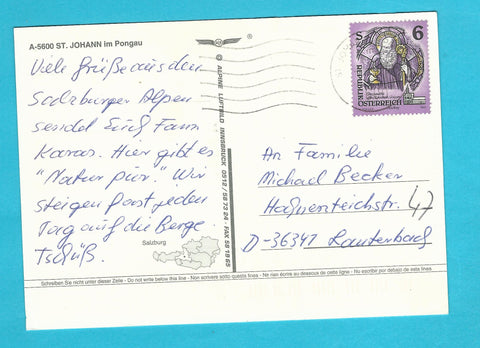 A-5600 ST. JOHANN im Pongau
Viele Grüße aus den
Salzburger Alpen
sendet Euch Fam.
Karas. Hier gibt es
"Natur pur." Wir
steigen fast jeden
Tag auf die Berge.
Tschüß.
© ALPINE LUFTBILD INNSBRUCK 0512/58 73 24 · FAX 58 19 65
S 6
REPUBLIK
ÖSTERREICH
An Familie
Michael Becker
47
D-36341 Lauterbach
Salzburg
Schreiben Sie nicht unter dieser Zeile - Do not write below this line - Non scrivere sotto questa linea - Ne rien écrire au dessous de cette ligne - Nu escribir por debajo de esta linea